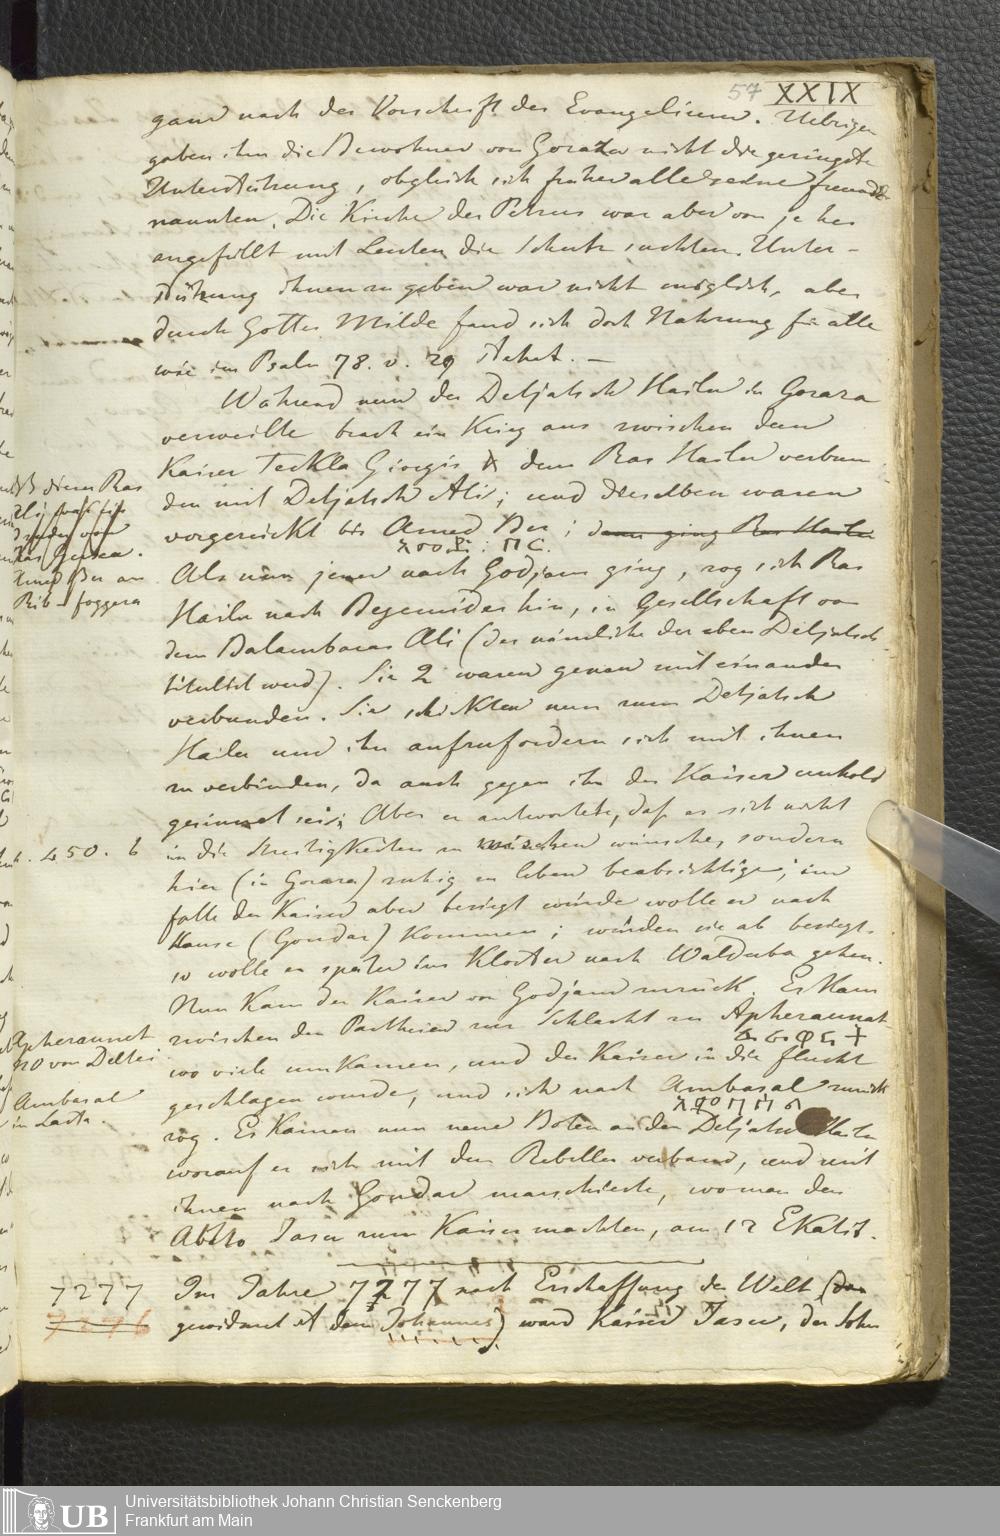 57 XXIX
ganz nach der Vorschrift des Evangeliums. Uebrigen
gaben ihm die Bewohner von Gorara nicht die geringste
Unterstützung, obgleich sich früher alle seine freunde
nannten. Die Kirche des Petrus war aber von je her
angefüllt mit Leuten die Schutz suchten. Unter-
stützung ihnen zu geben war nicht möglich, aber
durch Gottes Milde fand sich doch Nahrung für alle
wie im Psalm 78. v. 29 stehet. —
Während nun der Detjatsch Hailu in Gorara
verweilte brach ein Krieg aus zwischen dem
Kaiser Teckla Giorgis & dem Ras Hailu verbun
den mit Detjatsch Ali; und dieselben waren
vorgerückt bis Amed Ber; dann ging Ras Hailu
Als nun jener nach Godjam ging, zog sich Ras
Hailu nach Begemider hin, in Gesellschaft von
dem Balambaras Ali (der nämliche der oben Detjatsch
titulirt wird). Sie 2 waren genau mit einander
verbunden. Sie schickten nun zum Detjatsch
Hailu um ihn aufzufordern sich mit ihnen
zu verbinden, da auch gegen ihn der Kaiser unhold
gesinnet sei; Aber er antwortete, daß er sich nicht
in die Streitigkeiten zu mischen wünsche, sondern
hier (in Gorara) ruhig zu leben beabsichtige; im
falle der Kaiser aber besiegt würde wolle er nach
Hause (Gondar) kommen; würden sie ab besiegt,
so wolle er später ins Kloster nach Walduba gehen.
Nun kam der Kaiser von Godjam zurück. Es kam
zwischen den Partheien zur Schlacht zu Apheraunat
wo viele umkamen, und der Kaiser in die flucht
geschlagen wurde, und sich nach Ambasal zurück
አምባሰል
zog. Es kamen nun neue Boten an den Detjatsch Hailu
worauf er sich mit den Rebellen verband, und mit
ihnen nach Gondar marschierte, wo man den
Abeto Jasu zum Kaiser machten, am 12 Ekatit.
Im Jahre 7277 nach Erschaffung der Welt (das
gewidmet ist dem Johannes) ward Kaiser Jasu, der Sohn
diesem Ras
Ras
Amed Ber am
Rib-foggera
450. b
Apheraunat
NO von
Ambasal
in Lasta.
7277
7276
UB
Universitätsbibliothek Johann Christian Senckenberg
Frankfurt am Main